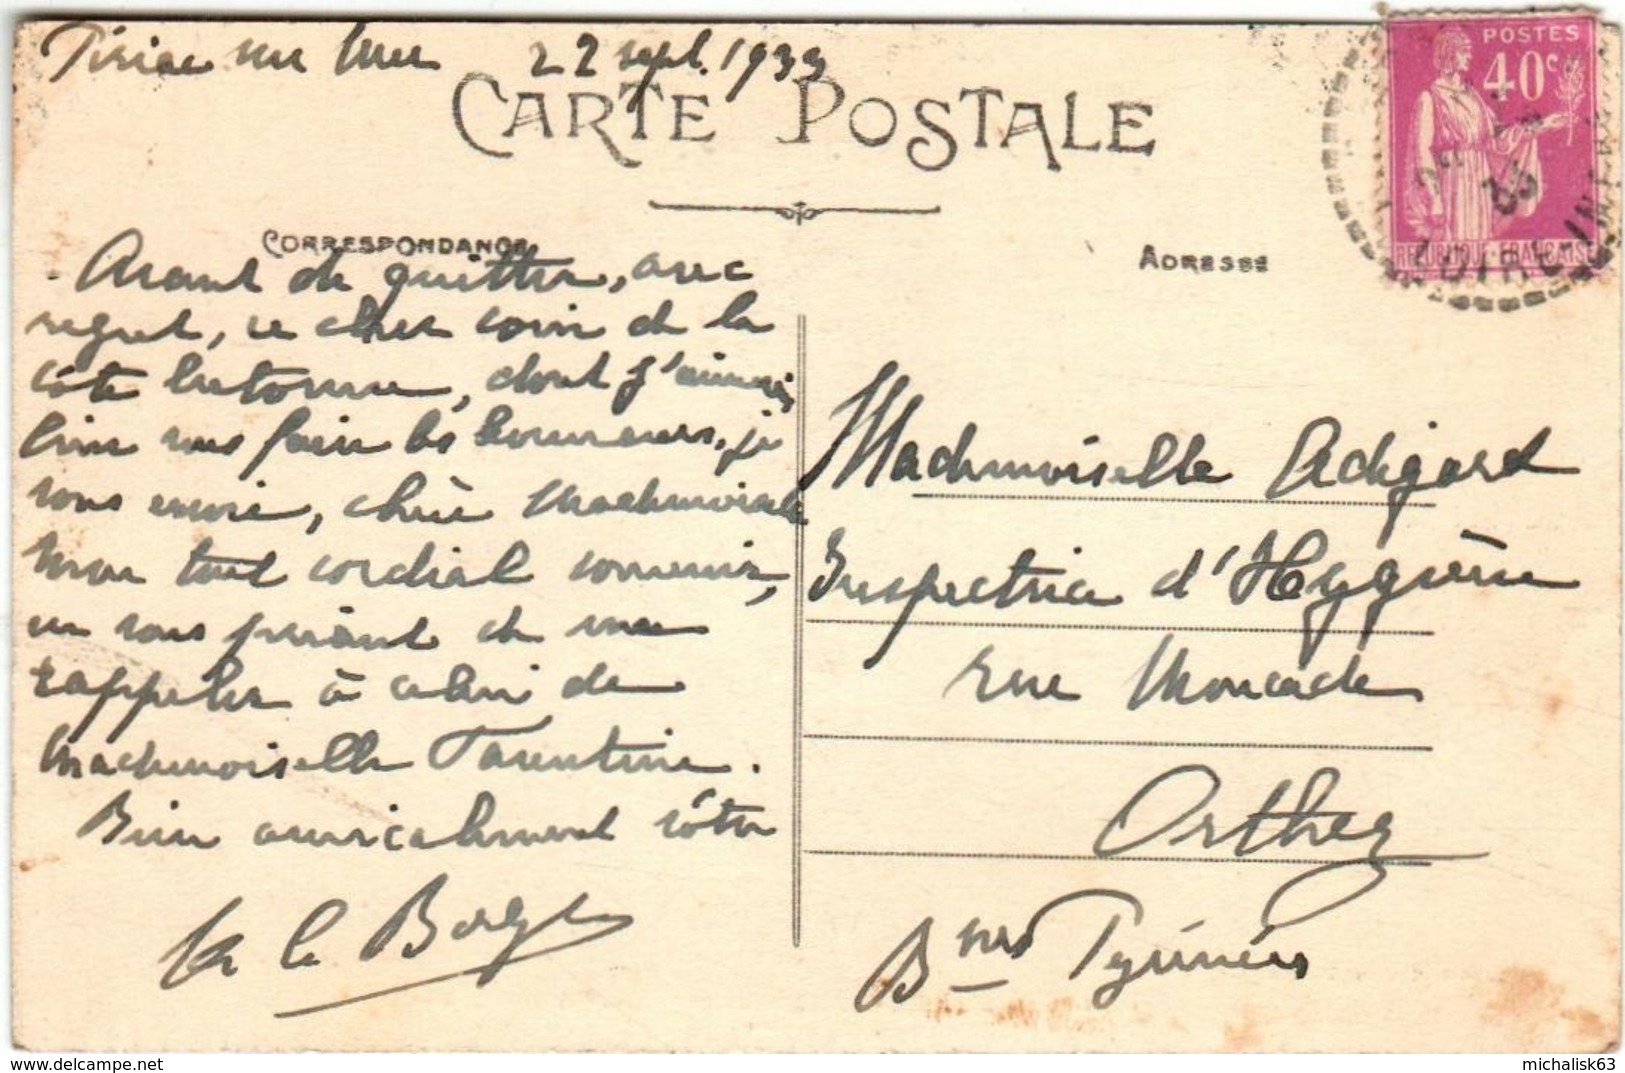 Piriac sur Mer 22 sept. 1933
CARTE POSTALE
POSTES
40c
RÉPUBLIQUE FRANÇAISE
LOIRE-IN
CORRESPONDANCE
ADRESSE
Avant de quitter, avec
regret, ce cher coin de la
côte bretonne, dont j'aimerais
bien vous faire les honneurs, je
vous envoie, chère Mademoiselle
mon tout cordial souvenir,
en vous priant de me
rappeler à celui de
Mademoiselle Tarentine.
Bien amicalement vôtre
le
Mademoiselle Adigard
Inspectrice d'Hygiène
rue Moncade
Orthez
Bses Pyrénées
delcampe.net
michalisk63